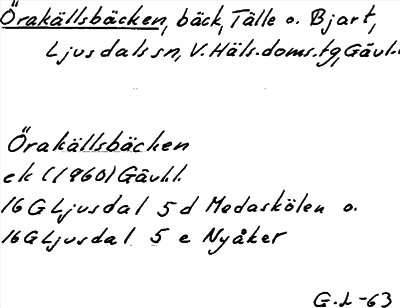 Örakällsbäcken, bäck, Tälle o. Bjart,
Ljusdals sn, V. Häls. doms. tg, Gävl.
Örakällsbäcken
ek (1960) Gävl.l.
16G Ljusdal 5 d Medaskölen o.
16G Ljusdal 5 e Nyåker
G. L -63